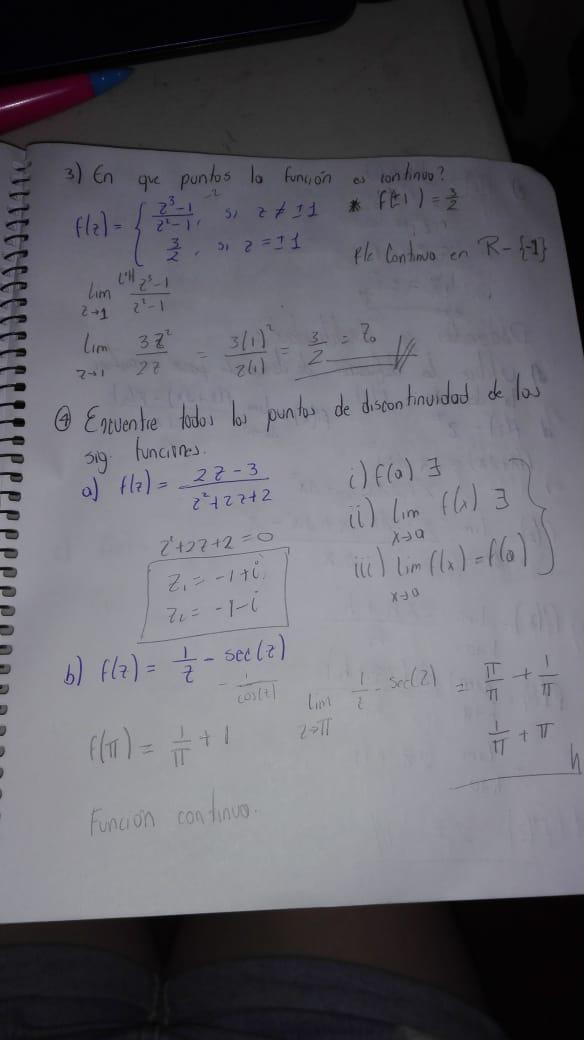 3) En que puntos la función es continua?
f(z) = { z³-1 / z²-1 , si z ≠ ±1
3/2 , si z = ±1
* f(±1) = 3/2
f(z) Continua en R - {-1}
lim z→1 L'H z³-1 / z²-1
lim z→1 3z² / 2z = 3(1)² / 2(1) = 3/2 = z₀
④ Encuentre todos los puntos de discontinuidad de las
sig. funciones.
a) f(z) = 2z-3 / z²+2z+2
z²+2z+2=0
z₁ = -1+i
z₂ = -1-i
i) f(a) ∃
ii) lim x→a f(x) ∃
iii) lim x→a f(x) = f(a)
b) f(z) = 1/z - sec(z)
- 1/cos(z)
f(π) = 1/π + 1
lim z→π 1/z - sec(z) = π/π + 1/π
1/π + π
Función continua.